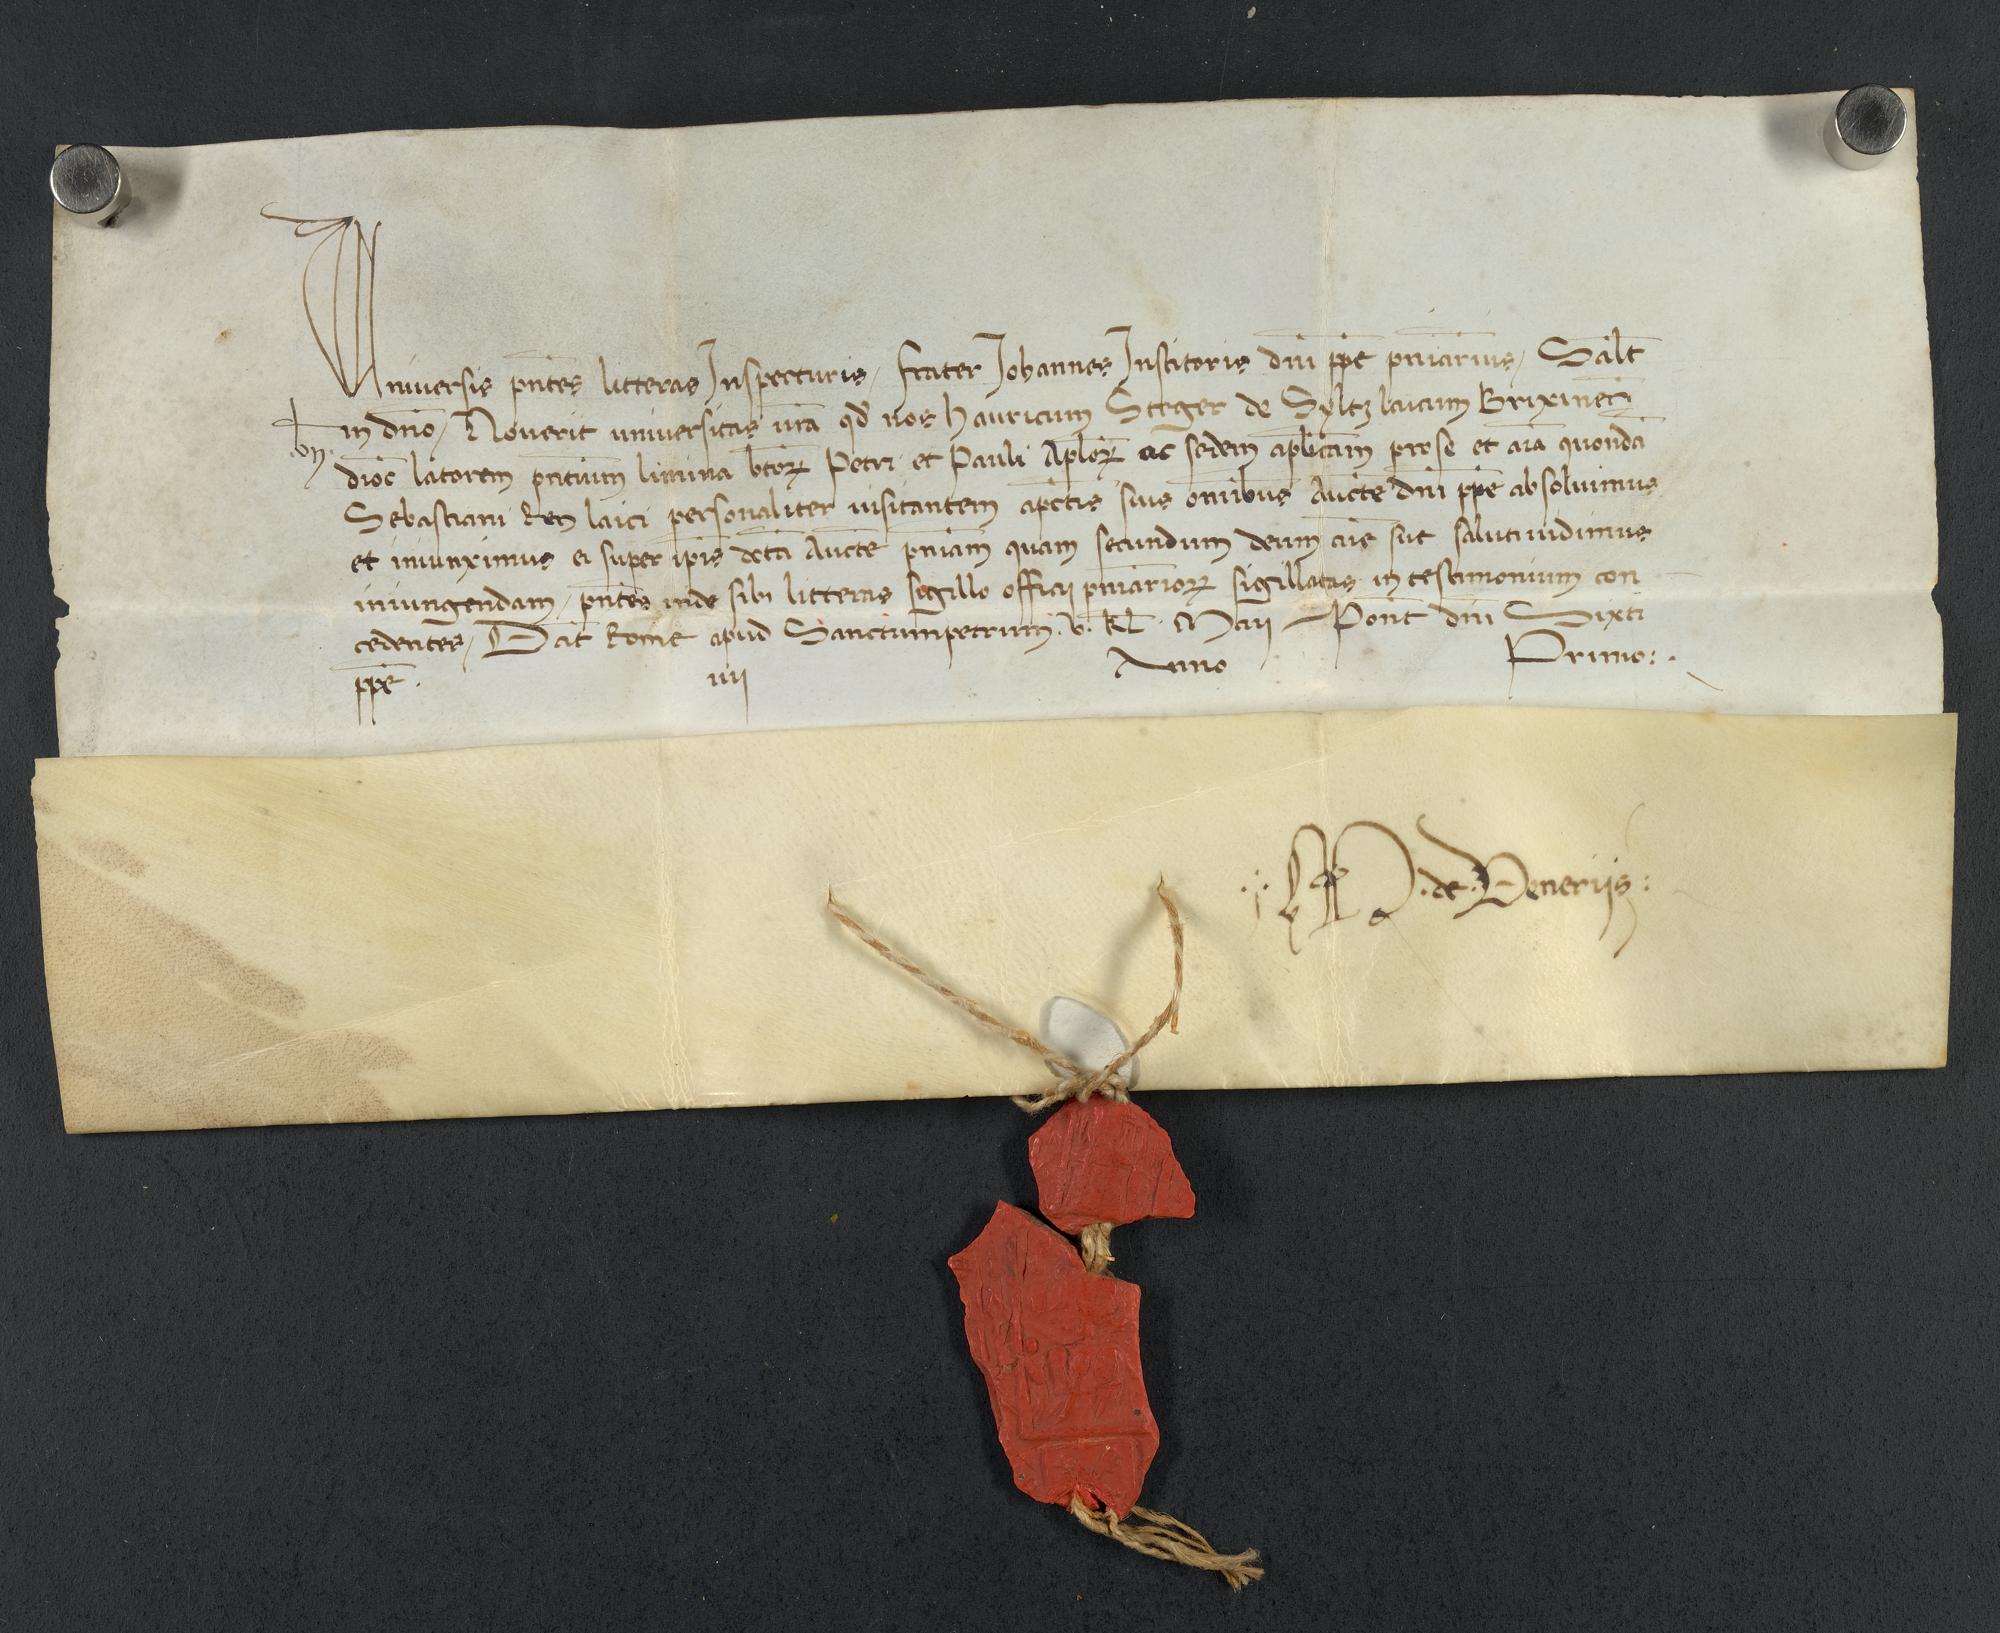 Universis pntes litteras Inspecturis, frater Johannes Institoris dni ppe pniarius, Salt
in dno, Noverit universitas vra qd nos hauricum Steger de Syltz laicum Brixinen
bn
dioc latorem pntium limina btorꝝ Petri et Pauli Aplorꝝ ac sedem aplicam pro se et aia quonda
Sebastiani laici personaliter visitantem a pctis suis omibus Aucte dni ppe absolvimus
et iniunximus ei super ipis Aucte pniam quam secundum deum aie sue saluti vidimus
iniungendam, pntes inde sibi litteras sigillo officii pniariorꝝ sigillatas in testimonium con
cedentes, Dat Rome apud Sanctumpetrum .v. kl Maii Pont dni Sixti
ppe . iiii Anno Primo:.
.de. Veneriis: